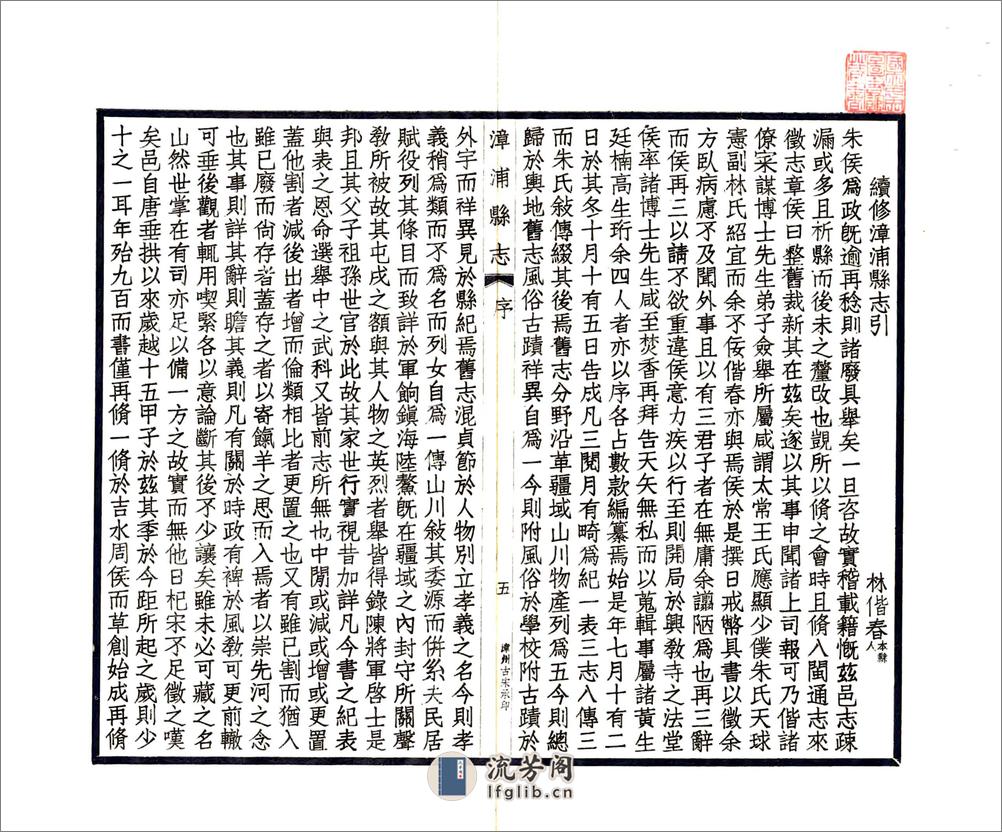 續修漳浦縣志引
林偕春本縣人
朱侯爲政旣逾再稔則諸廢具舉矣一旦咨故實稽載籍慨茲邑志疎
漏或多且析縣而後未之釐改也覬所以脩之會時且脩入閩通志來
徵志章侯曰整舊裁新其在茲矣遂以其事申聞諸上司報可乃偕諸
僚寀謀博士先生弟子僉舉所屬咸謂太常王氏應顯少僕朱氏天球
憲副林氏紹宜而余不佞偕春亦與焉侯於是撰日戒幣具書以徵余
方臥病慮不及聞外事且以有三君子者在無庸余譾陋爲也再三辭
而侯再三以請不欲重違侯意力疾以行至則開局於興敎寺之法堂
侯率諸博士先生咸至焚香再拜告天矢無私而以蒐輯事屬諸黃生
廷楠高生珩余四人者亦以序各占數款編纂焉始是年七月十有二
日於其冬十月十有五日告成凡三閱月有畸爲紀一表三志八傳三
而朱氏敍傳綴其後焉舊志分野沿革疆域山川物產列爲五今則總
歸於輿地舊志風俗古蹟祥異自爲一今則附風俗於學校附古蹟於
漳浦縣志
序
五
漳州古宋承印
外宇而祥異見於縣紀焉舊志混貞節於人物別立孝義之名今則孝
義稍爲類而不爲名而列女自爲一傳山川敍其委源而倂系夫民居
賦役列其條目而致詳於軍餉鎭海陸鰲旣在疆域之內封守所關聲
敎所被故其屯戌之額與其人物之英烈者舉皆得錄陳將軍啓土是
邦且其父子祖孫世官於此故其家世行實視昔加詳凡今書之紀表
與表之恩命選舉中之武科又皆前志所無也中閒或減或增或更置
蓋他割者減後出者增而倫類相比者更置之也又有雖已割而猶入
雖已廢而尙存者蓋存之者以寄餼羊之思而入焉者以崇先河之念
也其事則詳其辭則贍其義則凡有關於時政有裨於風敎可更前轍
可垂後觀者輒用喫緊各以意論斷其後不少讓矣雖未必可藏之名
山然世掌在有司亦足以備一方之故實而無他日杞宋不足徵之嘆
矣邑自唐垂拱以來歲越十五甲子於茲其季於今距所起之歲則少
十之一耳年殆九百而書僅再脩一脩於吉水周侯而草創始成再脩
流芳阁
lfglib.cn